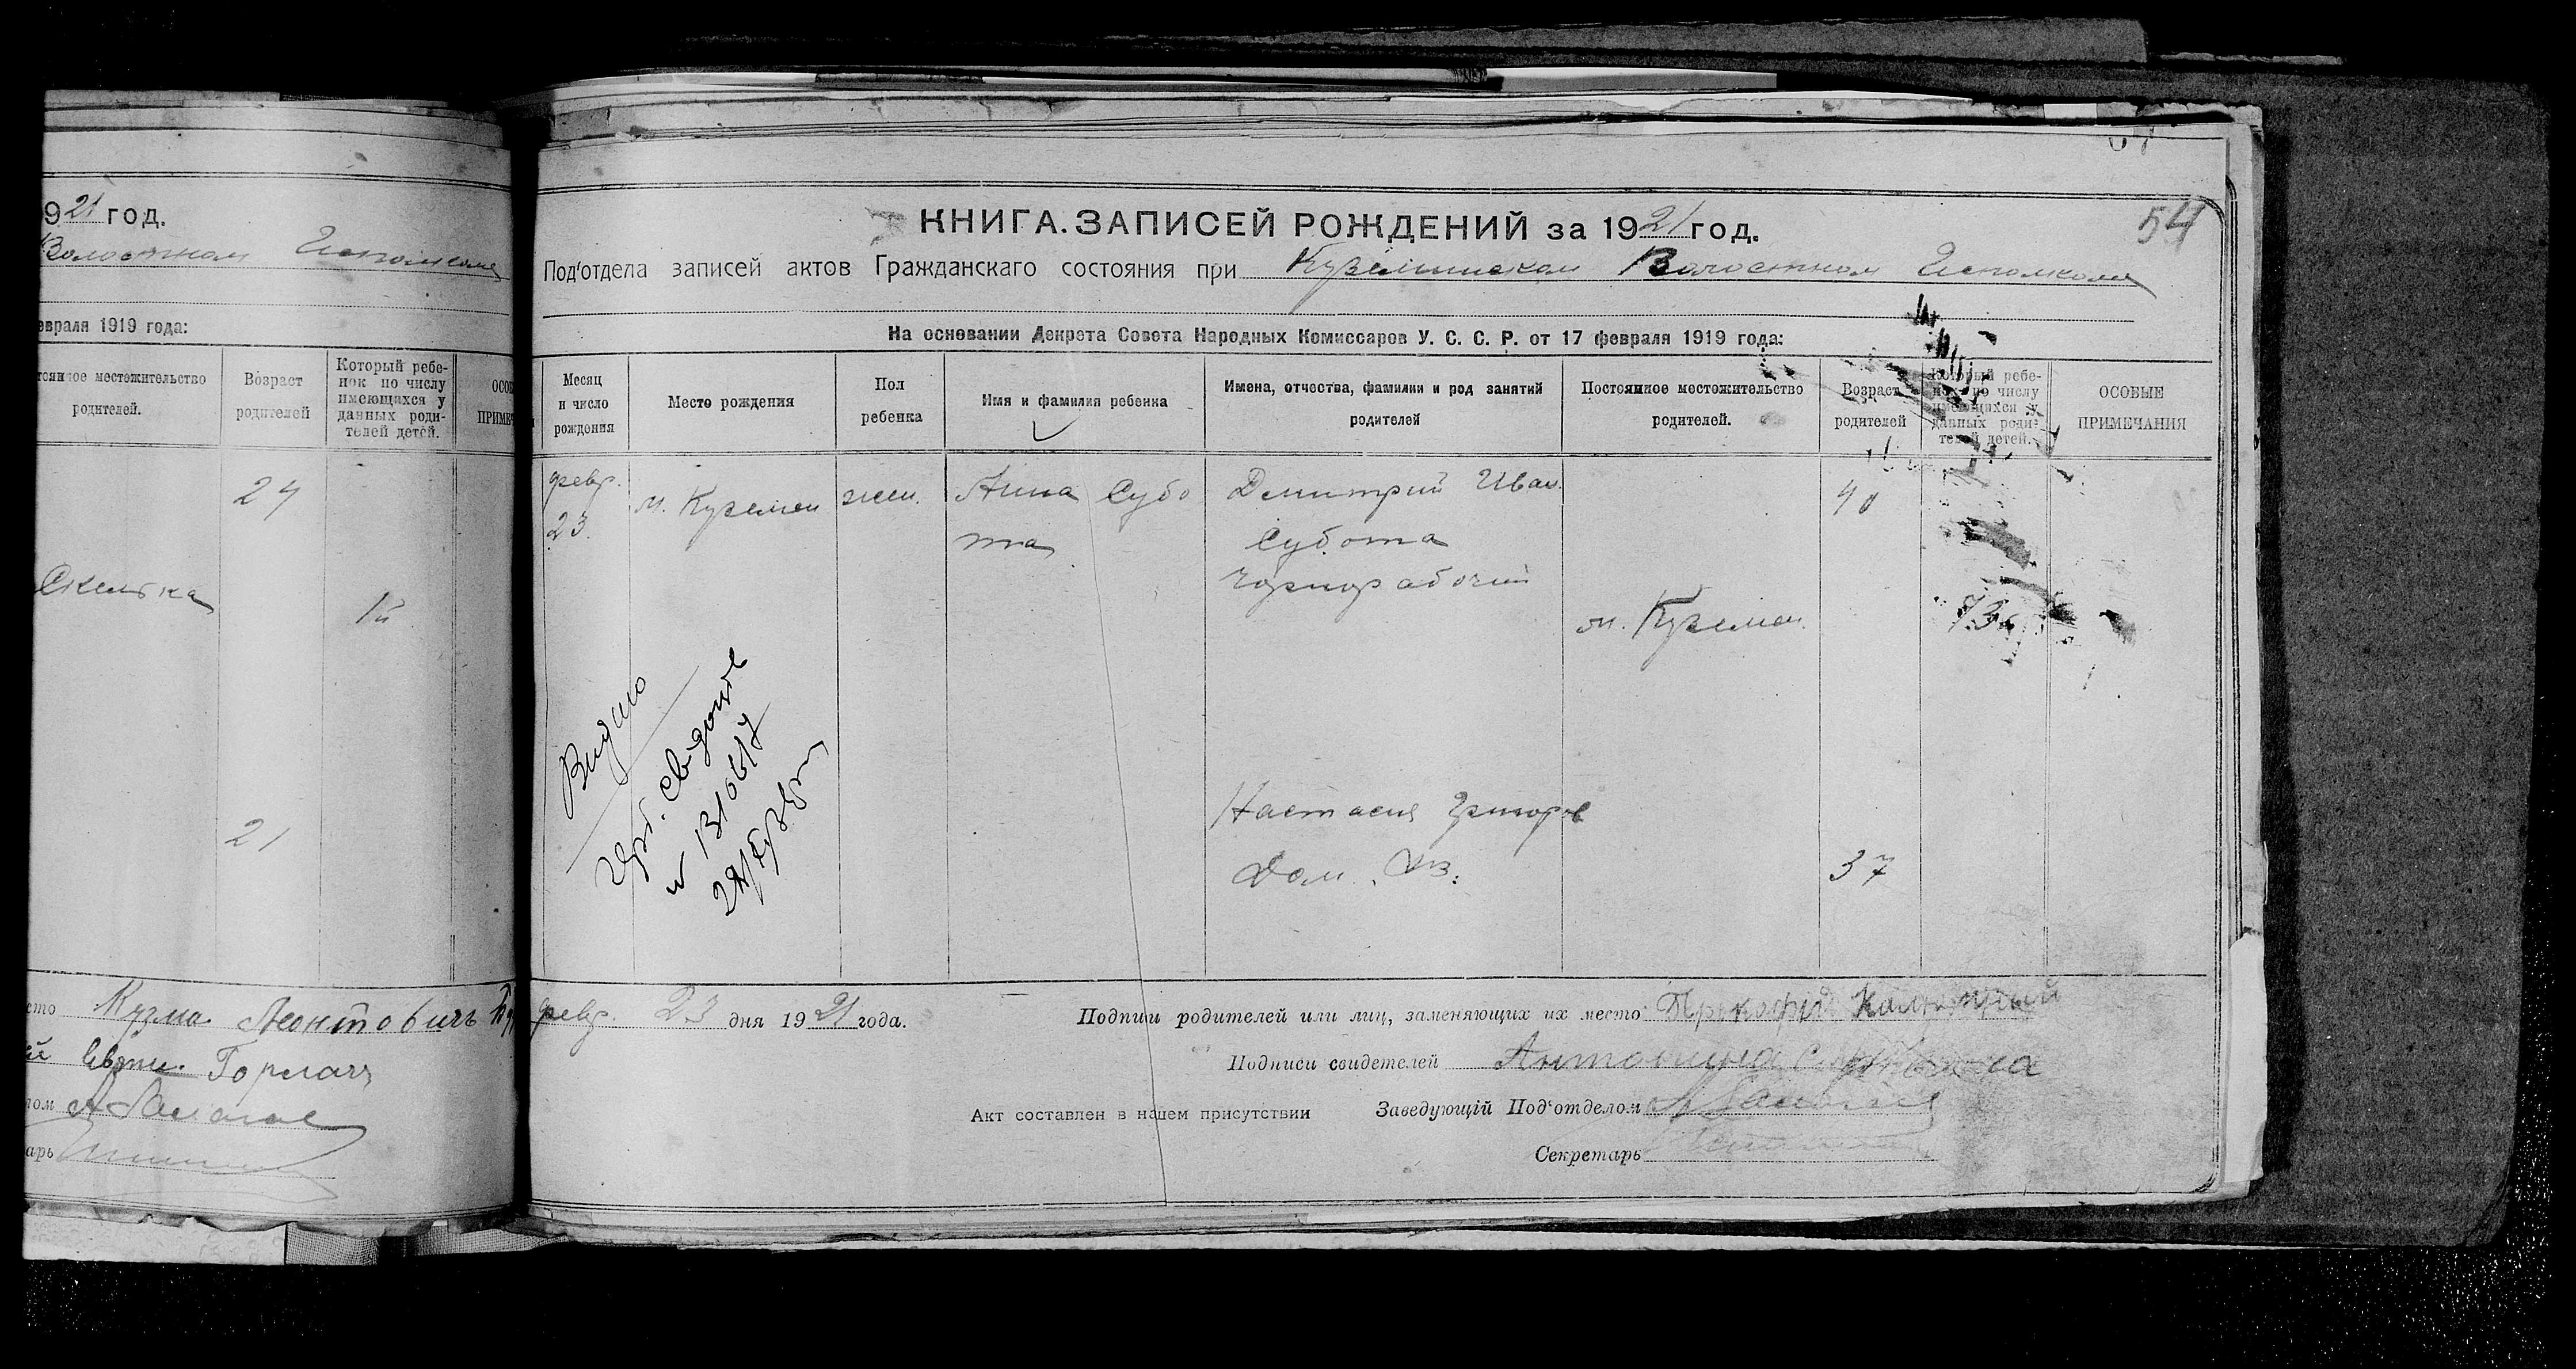 1921 год.
Волостном Исполкоме
февраля 1919 года:
местожительство
родителей.
Возраст
родителей
Который ребе-
нок по числу
имеющихся у
данных роди-
телей детей.
24
Скелька
1й
21
Кузма Леонтовичь
Горлач
54
КНИГА ЗАПИСЕЙ РОЖДЕНИЙ за 1921 год.
Под'отдела записей актов Гражданскаго состояния при Куземинском Волостном Исполкоме
На основании Декрета Совета Народных Комиссаров У. С. С. Р. от 17 февраля 1919 года:
Месяц
и число
рождения
Место рождения
Пол
ребенка
Имя и фамилия ребенка
Имена, отчества, фамилии и род занятий
родителей
Постоянное местожительство
родителей.
Возраст
родителей
Который ребе-
нок по числу
имеющихся у
данных роди-
телей детей.
ОСОБЫЕ
ПРИМЕЧАНИЯ
февр.
23.
м. Куземен
жен.
Анна Субо
та
Дмитрий Иван.
Субота
Чорнорабочий
м. Куземен.
40
Настасия Григоров
Дом. Хоз.
37
Видано
свідоцтв
февр. 23 дня 1921 года.
Подписи родителей или лиц, заменяющих их место
Подписи свидетелей Антонина
Акт составлен в нашем присутствии
Заведующій Под'отделом
Секретарь